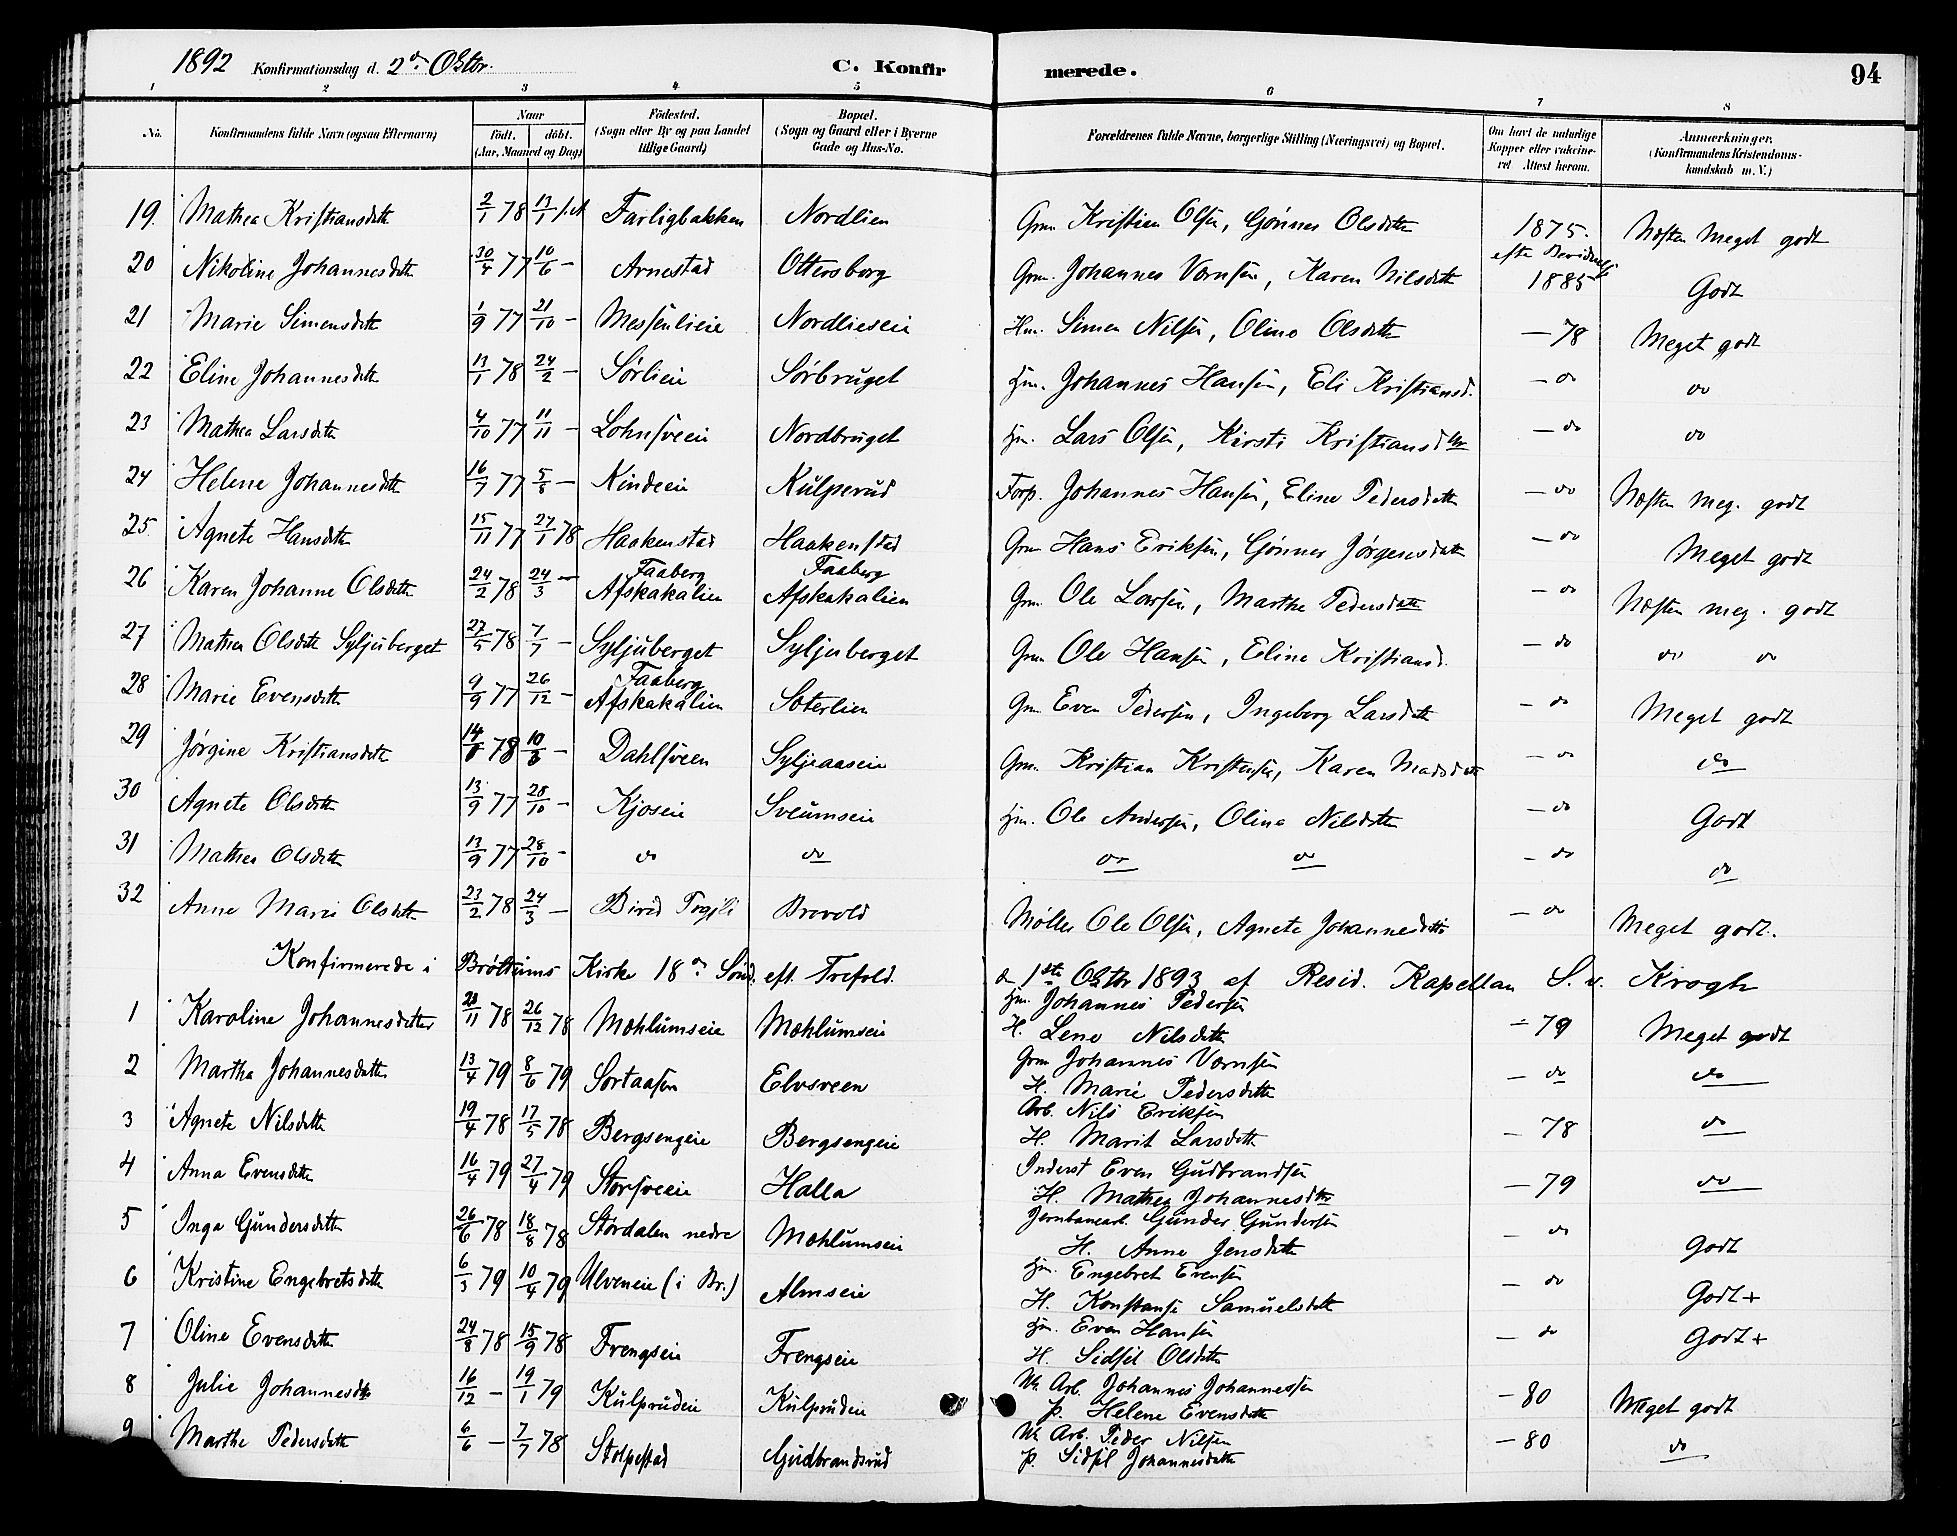 1892 Konfirmationsdag d. 2den Oktbr. C. Konfir merede. 94
1 2 3 4 5 6 7 8
No. Konfirmandens fulde Navn (ogsaa Efternavn) Naar födt. döbt. (Aar, Maaned og Dag) Födested. (Sogn eller By og paa Landet tillige Gaard) Bopæl. (Sogn og Gaard eller i Byerne Gade og Hus-No. Forældrenes fulde Navne, borgerlige Stilling (Næringsvei) og Bopæl. Om havt de naturlige Kopper eller vaccineret Attest herom. Anmærkninger. (Konfirmandens Kristendomskundskab m.V.)
19. Mathea Kristiansdtt 2/1 78 13/1 s.A Farligbakken Nordlien Grm Kristian Olsen, Gönner Olsdttr 1875. Næsten Meget godt
20 Nikoline Johannesdttr 30/4 77 10/6 — Arnestad Ottersborg Grm. Johannes Vernsen, Karen Nilsdttr 1885 Godt
21 Marie Simensdttr 1/9 77 21/10 — Messenlieie Nordlieseie Hm. Simen Nilsen, Oline Olsdttr — 78 Meget godt
22 Eline Johannesdttr 11/1 78 24/2 — Sörlieie Sörbruget Hm. Johannes Hansen, Eli Kristiansd. — do do
23 Mathea Larsdttr 4/10 77 11/11 — Lohnsveeie Nordbruget Hm. Lars Olsen, Kirsti Kristiansdttr — do do
24 Helene Johannesdttr 16/7 77 5/8 — Kindeeie Kulperud Forp. Johannes Hansen, Eline Pedersdttr — do Næsten meg. godt
25. Agnete Hansdttr 15/11 77 27/1 78 Haakenstad Haakenstad Grm Hans Eriksen, Gönner Jörgensdttr — do Meget godt
26 Karen Johanne Olsdttr 24/2 78 24/3 — Faaberg Afskakalien Faaberg Afskakalien Grm. Ole Larsen, Marthe Pedersdttr — do Næsten meg. godt
27 Mathea Olsdttr Syljuberget 27/5 78 7/7 — Syljuberget Syljuberget Grm Ole Hansen, Eline Kristiansd. — do do do
28 Marie Evensdttr 9/9 77 26/12 — Faaberg Afskakalien Sæterlien Grm Even Pedersen, Ingeborg Larsdttr — do Meget godt
29 Jörgine Kristiansdttr 14/1 78 10/3 — Dahlsveen Syljeaaseie Grm. Kristian Kristensen, Karen Madsdttr — do do
30 Agnete Olsdttr 13/9 77 28/10 — Kjoseie Sveumseie Hm. Ole Andersen, Oline Nilsdttr — do Godt
31 Mathea Olsdttr 13/9 77 28/10 — do do do do — do do
32 Anne Marie Olsdttr 23/2 78 24/3 — Birid Brevold Möller Ole Olsen, Agnete Johannesdttr — do Meget godt.
Konfirmerede i Bröttums Kirke 18de Sönd. eft. Trefold. d 1ste Oktbr 1893 af Resid. Kapellan S. v. Krogh
1 Karoline Johannesdatter 28/11 78 26/12 78 Mæhlumseie Mæhlumseie Hm. Johannes Pedersen
H. Lene Nilsdttr — 79 Meget godt
2 Martha Johannesdatter 13/4 79 8/6 79 Sortaasen Elvsveen Grm Johannes Vernsen
H. Marie Pedersdttr — do do
3 Agnete Nilsdttr 19/4 78 17/5 78 Bergsengeie Bergsengeie Arb. Nils Eriksen
H. Marit Larsdttr — 78 do
4 Anna Evensdttr 16/4 79 27/4 79 Storsveeie Halla Inderst Even Gudbrandsen
H. Mathea Johannesdttr — 79 do
5 Inga Gundersdttr 26/6 78 18/8 78 Stordalen nedre Mæhlumseie Jernbanearb. Gunder Gundersen
H. Anne Jensdttr — do Godt
6 Kristine Engebretsdttr 6/3 79 10/4 79 Ulveneie (i Br.) Almseie Hm. Engebret Evensen
H. Konstanse Samuelsdttr — do Godt+
7 Oline Evensdttr 24/8 78 15/9 78 Frengseie Frengseie Hm. Even Hansen
H. Sidsel Olsdttr — do Godt+
8 Julie Johannesdtr 16/12 — 19/1 79 Kulprudeie Kulprudeie Uk Arb. Johannes Johannessen
p. Helene Evensdttr — 80 Meget godt
9 Marthe Pedersdttr 6/6 — 7/7 78 Stolpestad Gudbrandsrud Uk Arb. Peder Nilsen
p. Sidsel Johannesdttr — 80 do